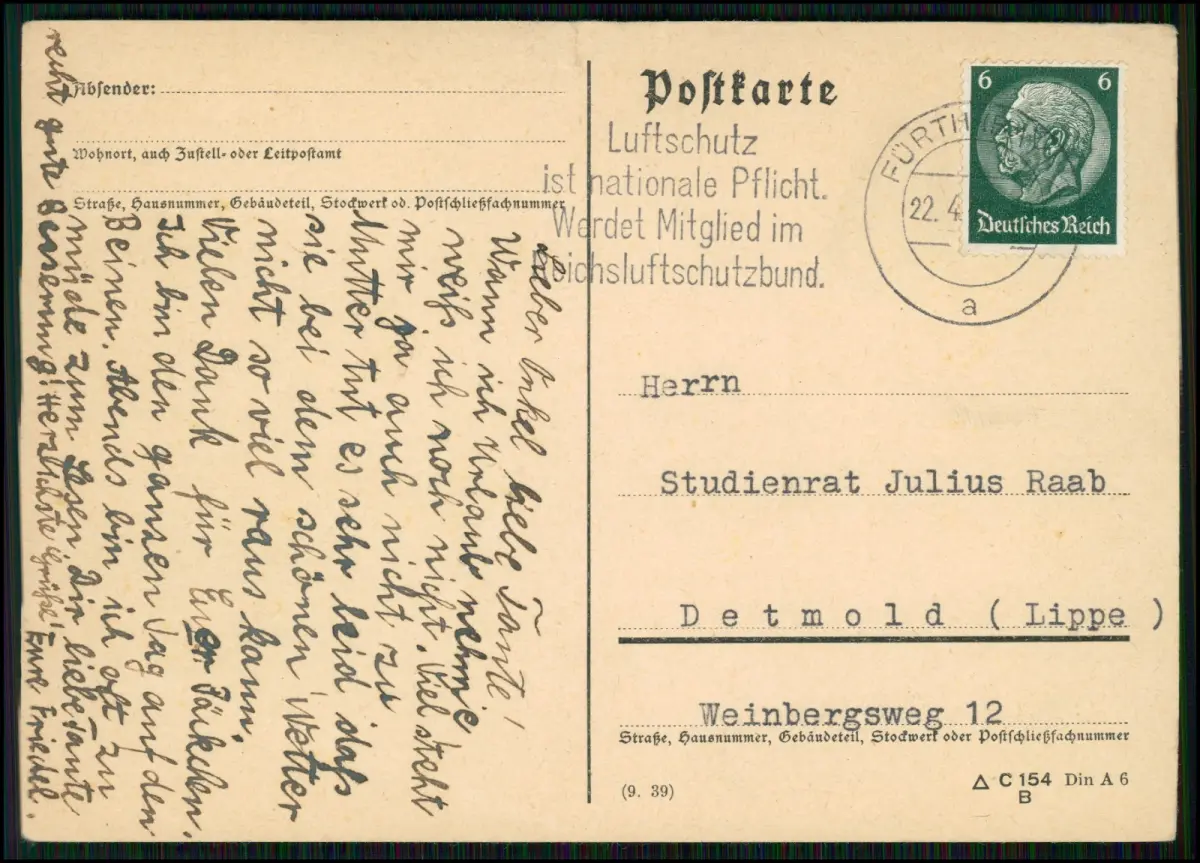 Absender:
Wohnort, auch Zustell- oder Leitpostamt
Straße, Hausnummer, Gebäudeteil, Stockwerk od. Postschließfachnummer
Lieber Onkel liebe Tante!
Wann ich Urlaub nehme
weiß ich noch nicht. Viel steht
mir ja auch nicht zu
Mutter tut es sehr leid daß
sie bei dem schönen Wetter
nicht so viel raus kann.
Vielen Dank für Euer Päckchen.
Ich bin den ganzen Tag auf den
Beinen. Abends bin ich oft zu
müde zum Lesen. Dir liebe Tante
recht gute Besserung! Herzlichste Grüße! Eure Friedel.
Postkarte
Luftschutz
ist nationale Pflicht.
Werdet Mitglied im
Reichsluftschutzbund.
FÜRTH
22. 4.
a
6 6
Deutsches Reich
Herrn
Studienrat Julius Raab
Detmold (Lippe)
Weinbergsweg 12
Straße, Hausnummer, Gebäudeteil, Stockwerk oder Postschließfachnummer
(9. 39)
△ C 154 Din A 6
B